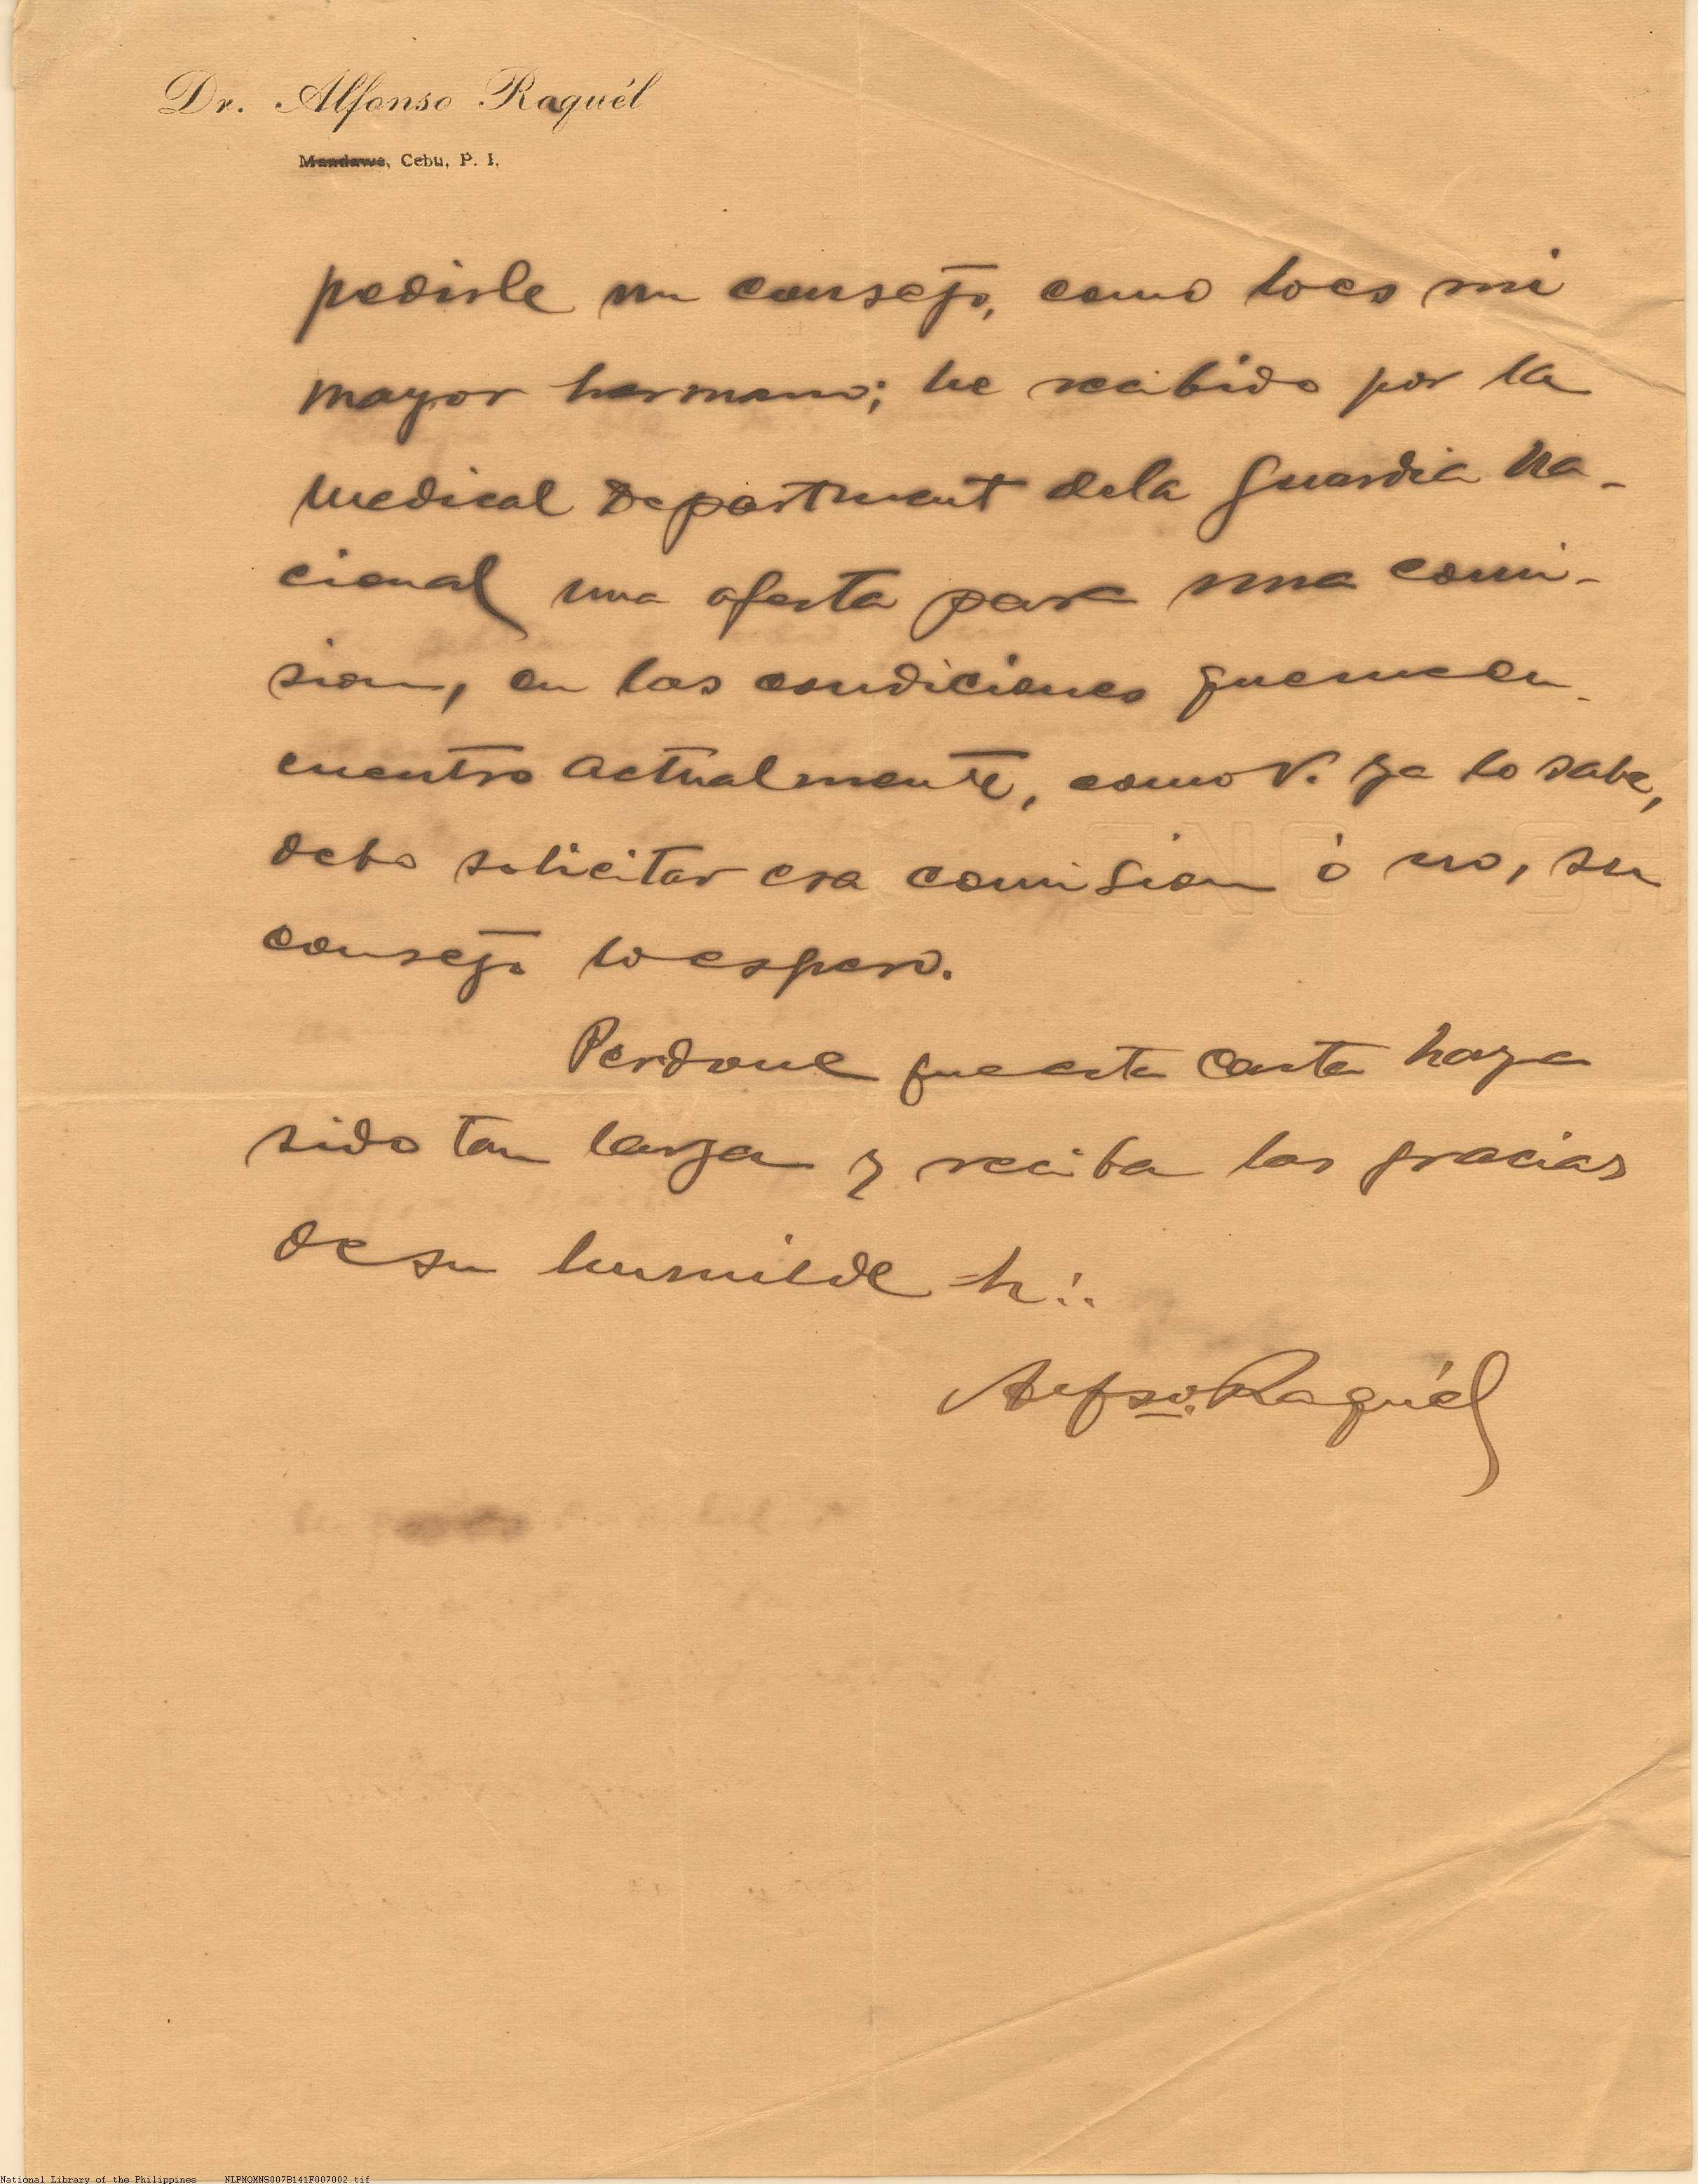 Dr. Alfonso Raquél
Mandawe, Cebu, P. I.
pedirle un consejo, como lo es mi
mayor hermano; he recibido por la
Medical Department dela Guardia Na-
cional una oferta para una comi-
sion, en las condiciones que me en-
cuentro actualmente, como V. ya lo sabe,
debo solicitar esa comision ó no, su
consejo lo espero.
Perdone que esta carta haya
sido tan larga y reciba las gracias
de su humilde h∴
Alfso. Raquél
National Library of the Philippines NLPMQMNS007B141F007002.tif